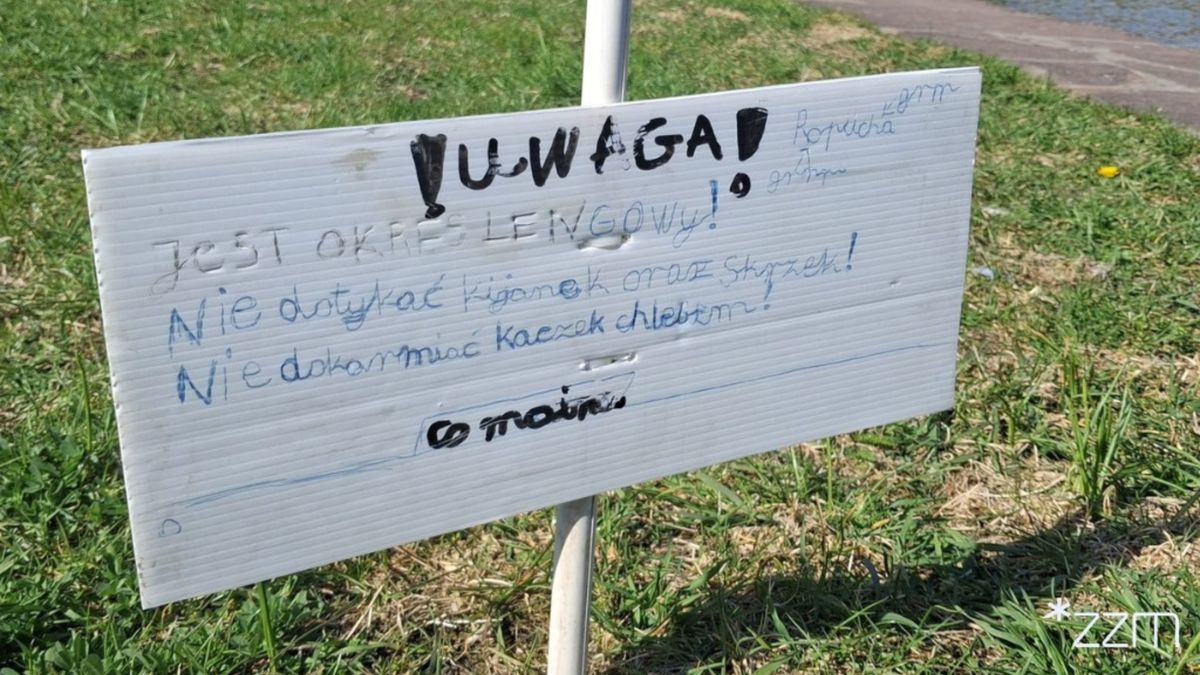 !UWAGA!
Ropucha
JEST OKRES LENGOWY!
Nie dotykać kijanek oraz skrzek!
Nie dokarmiać kaczek chlebem!
*zzm